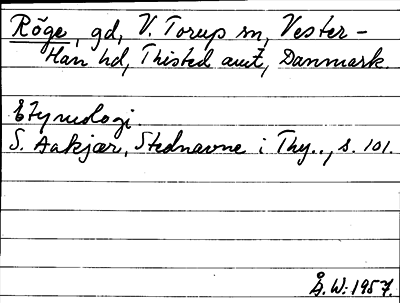 Röge, gd, V. Torup sn, Vester-
Han hd, Thisted amt, Danmark
Etymologi.
S. Aakjær, Stednavne i Thy.., s. 101.
Å. W. 1957.